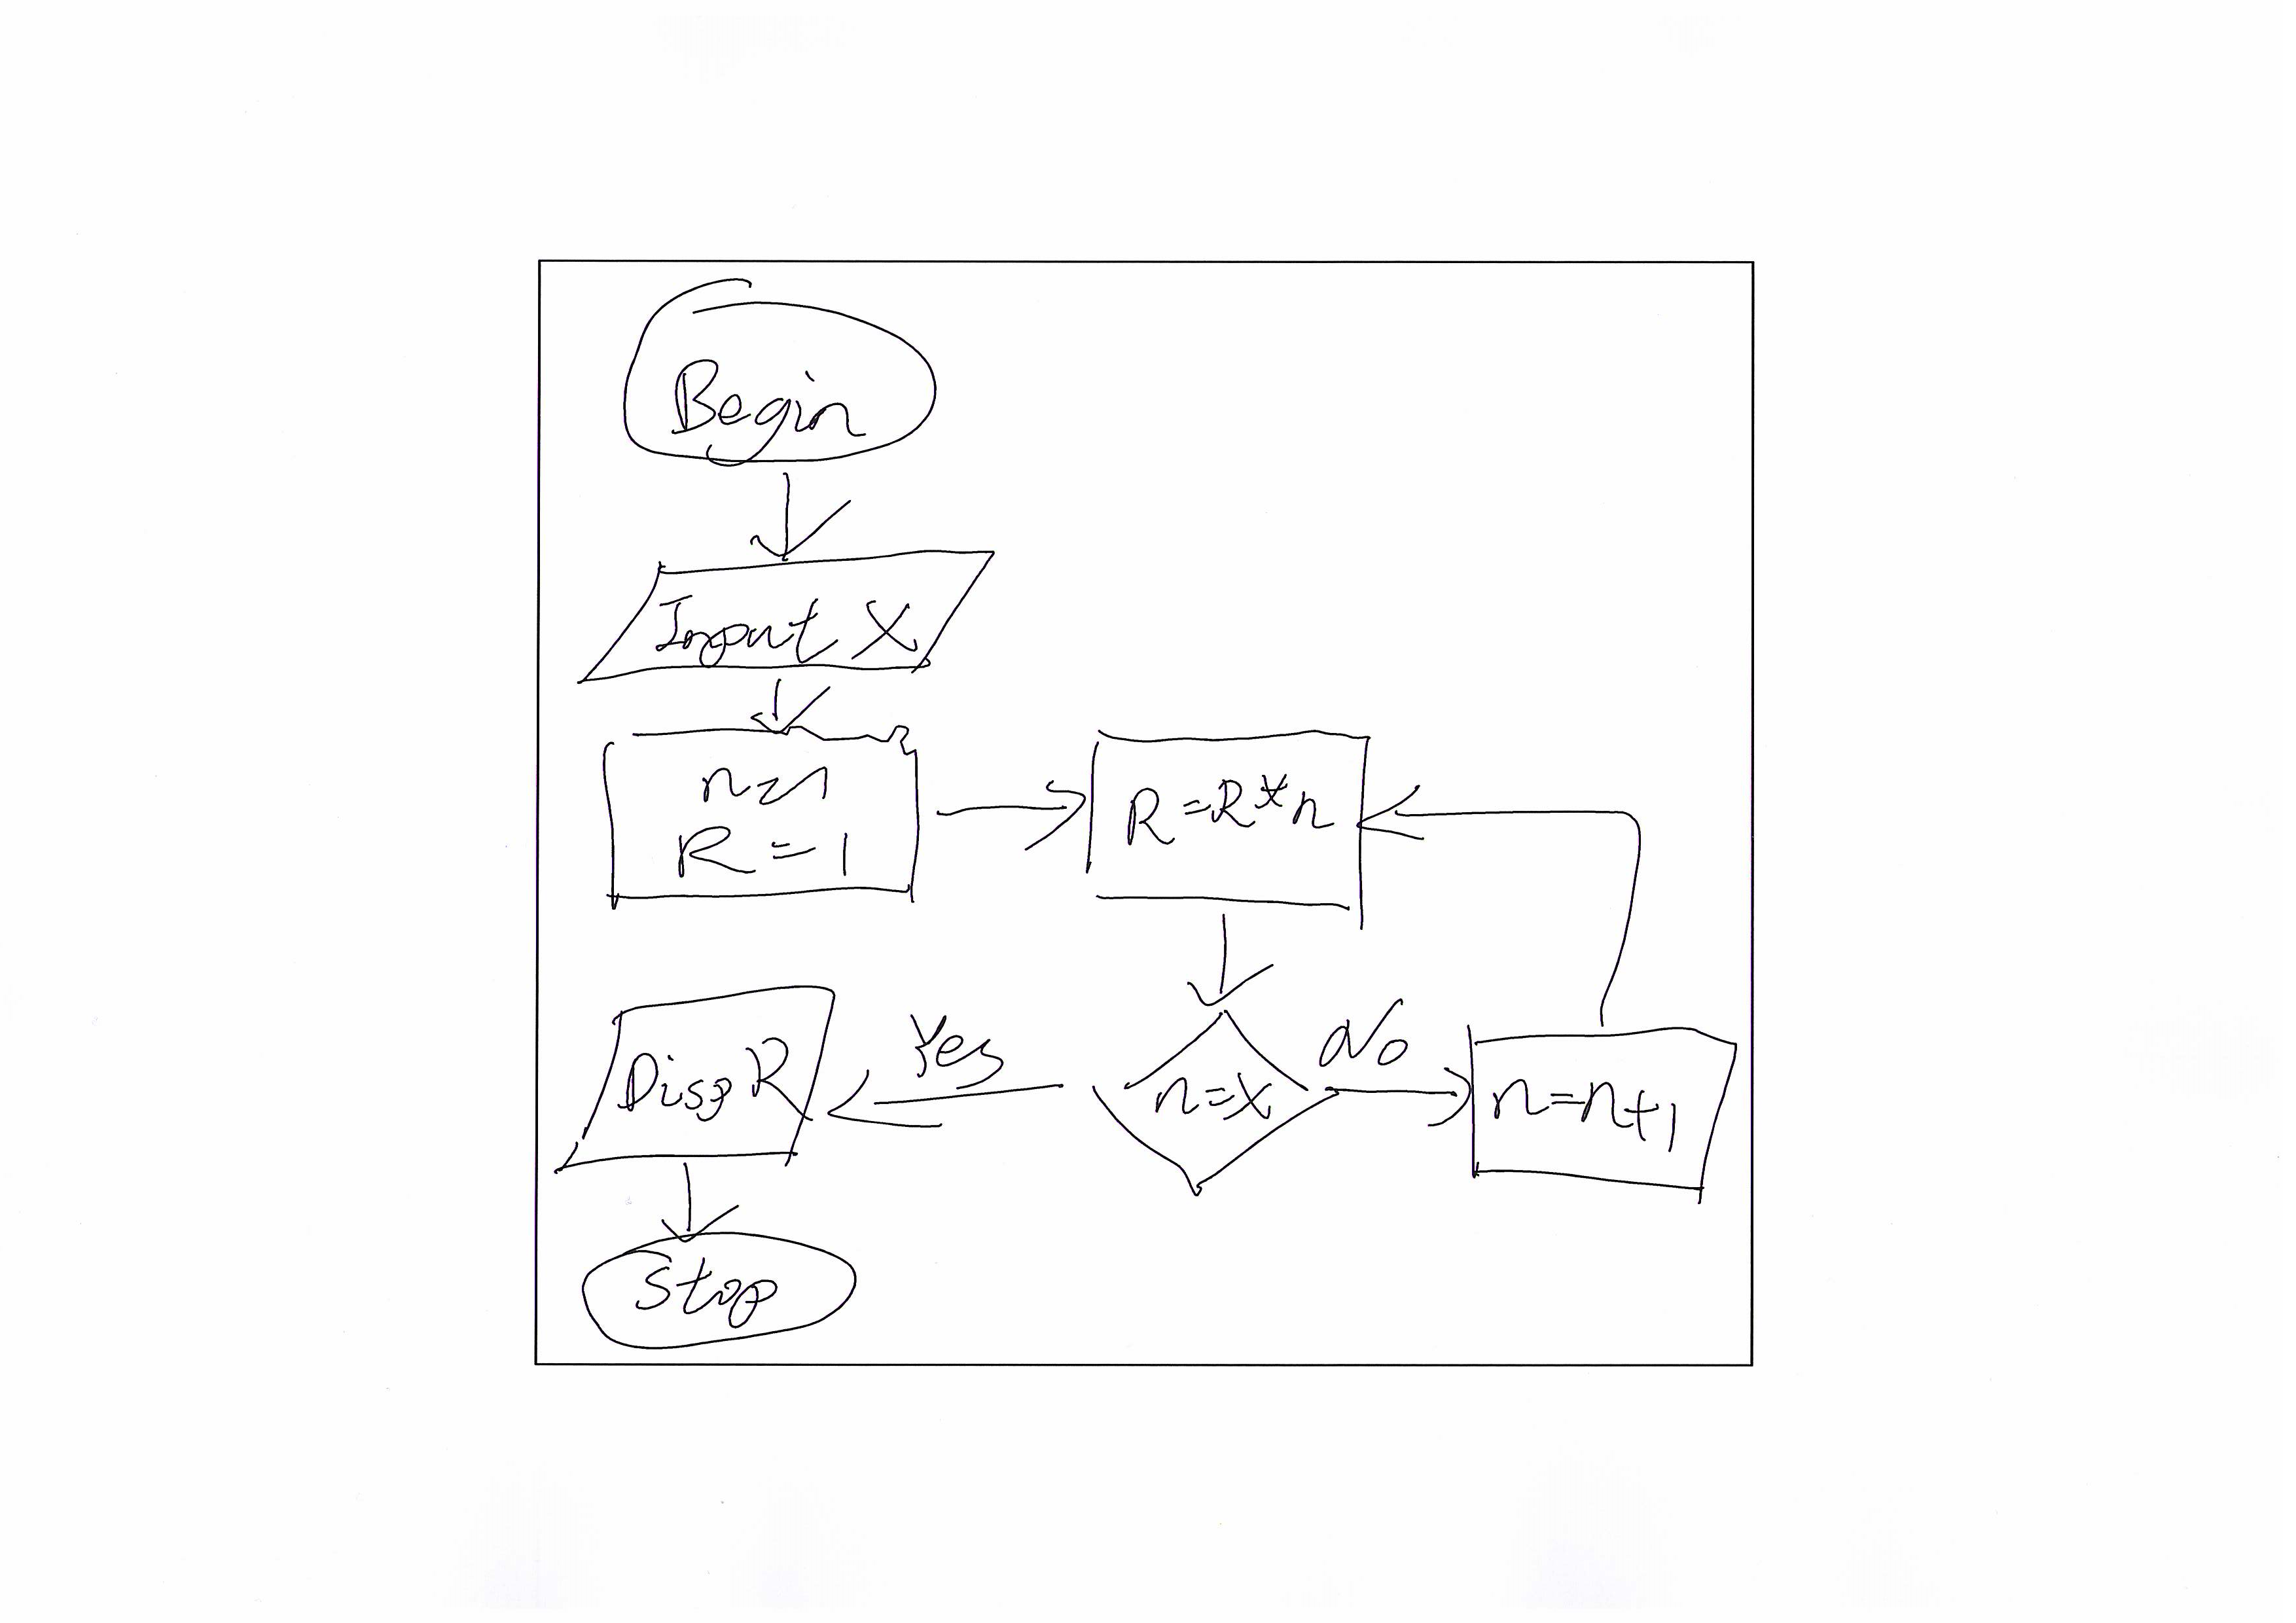 Begin
Input X
n=1
R=1
R=R*n
n=x
No
n=n+1
Yes
Disp R
Stop